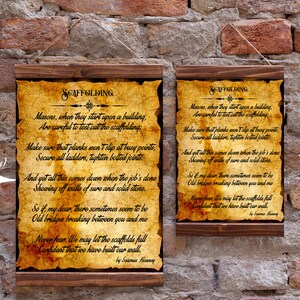 Scaffolding
Masons, when they start upon a building,
Are careful to test out the scaffolding;
Make sure that planks won't slip at busy points,
Secure all ladders, tighten bolted joints.
And yet all this comes down when the job's done
Showing off walls of sure and solid stone.
So if, my dear, there sometimes seem to be
Old bridges breaking between you and me
Never fear. We may let the scaffolds fall
Confident that we have built our wall.
by Seamus Heaney
Scaffolding
Masons, when they start upon a building,
Are careful to test out the scaffolding;
Make sure that planks won't slip at busy points,
Secure all ladders, tighten bolted joints.
And yet all this comes down when the job's done
Showing off walls of sure and solid stone.
So if, my dear, there sometimes seem to be
Old bridges breaking between you and me
Never fear. We may let the scaffolds fall
Confident that we have built our wall.
by Seamus Heaney